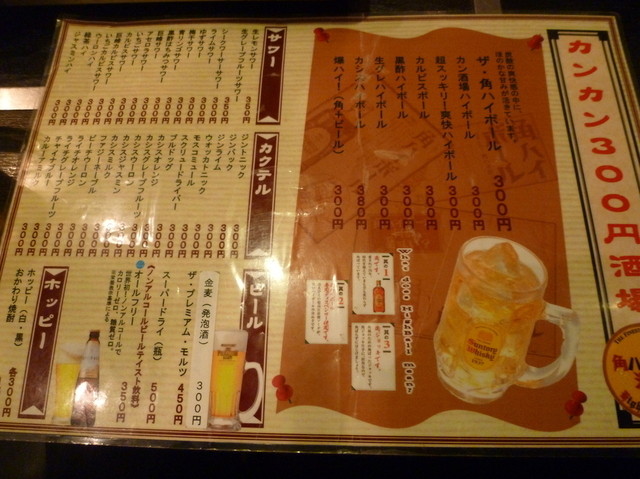 カンカン300円酒場
ザ・角ハイボール 300円
カン酒場ハイボール 300円
超スッキリ爽快ハイボール 300円
カルピスボール 300円
黒酢ハイボール 300円
生グレハイボール 300円
カシハイボール 380円
爆ハイ!(角+ビール) 300円
Suntory Whisky
サワー
生レモンサワー 350円
生グレープフルーツサワー 350円
シークワーサーサワー 300円
ライムサワー 300円
ゆずサワー 300円
梅干サワー 300円
青リンゴサワー 300円
黒酢はちみつサワー 300円
巨峰サワー 300円
アセロラサワー 300円
いちごサワー 300円
カルピスサワー 300円
巨峰カルピスサワー 300円
いちごカルピスサワー 300円
ウーロンハイ 300円
緑茶ハイ 300円
ジャスミンハイ 300円
カクテル
ジントニック 300円
ジンバック 300円
ジンライム 300円
ウォッカトニック 300円
モスコミュール 300円
スクリュードライバー 300円
ブルドッグ 300円
カシスオレンジ 300円
カシスグレープフルーツ 300円
カシスウーロン 300円
カシスジャスミン 300円
カシスミルク 300円
ファジーネーブル 300円
ピーチウーロン 300円
ライチオレンジ 300円
ライチグレープフルーツ 300円
チャイナブルー 300円
カルーアミルク 300円
ビール
金麦(発泡酒) 300円
ザ・プレミアム・モルツ 450円
スーパードライ(瓶) 500円
(ノンアルコールビールテイスト飲料)
オールフリー 350円
世界初!ノンアルコールで
カロリーゼロ。糖質ゼロ。
ホッピー
ホッピー(白・黒) 各300円
おかわり焼酎